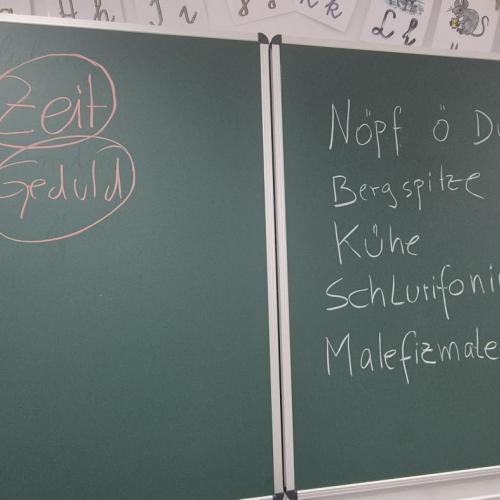 Zeit
Geduld
Nöpf ö Du
Bergspitze
Kühe
Schlurifoni
Malefizmate